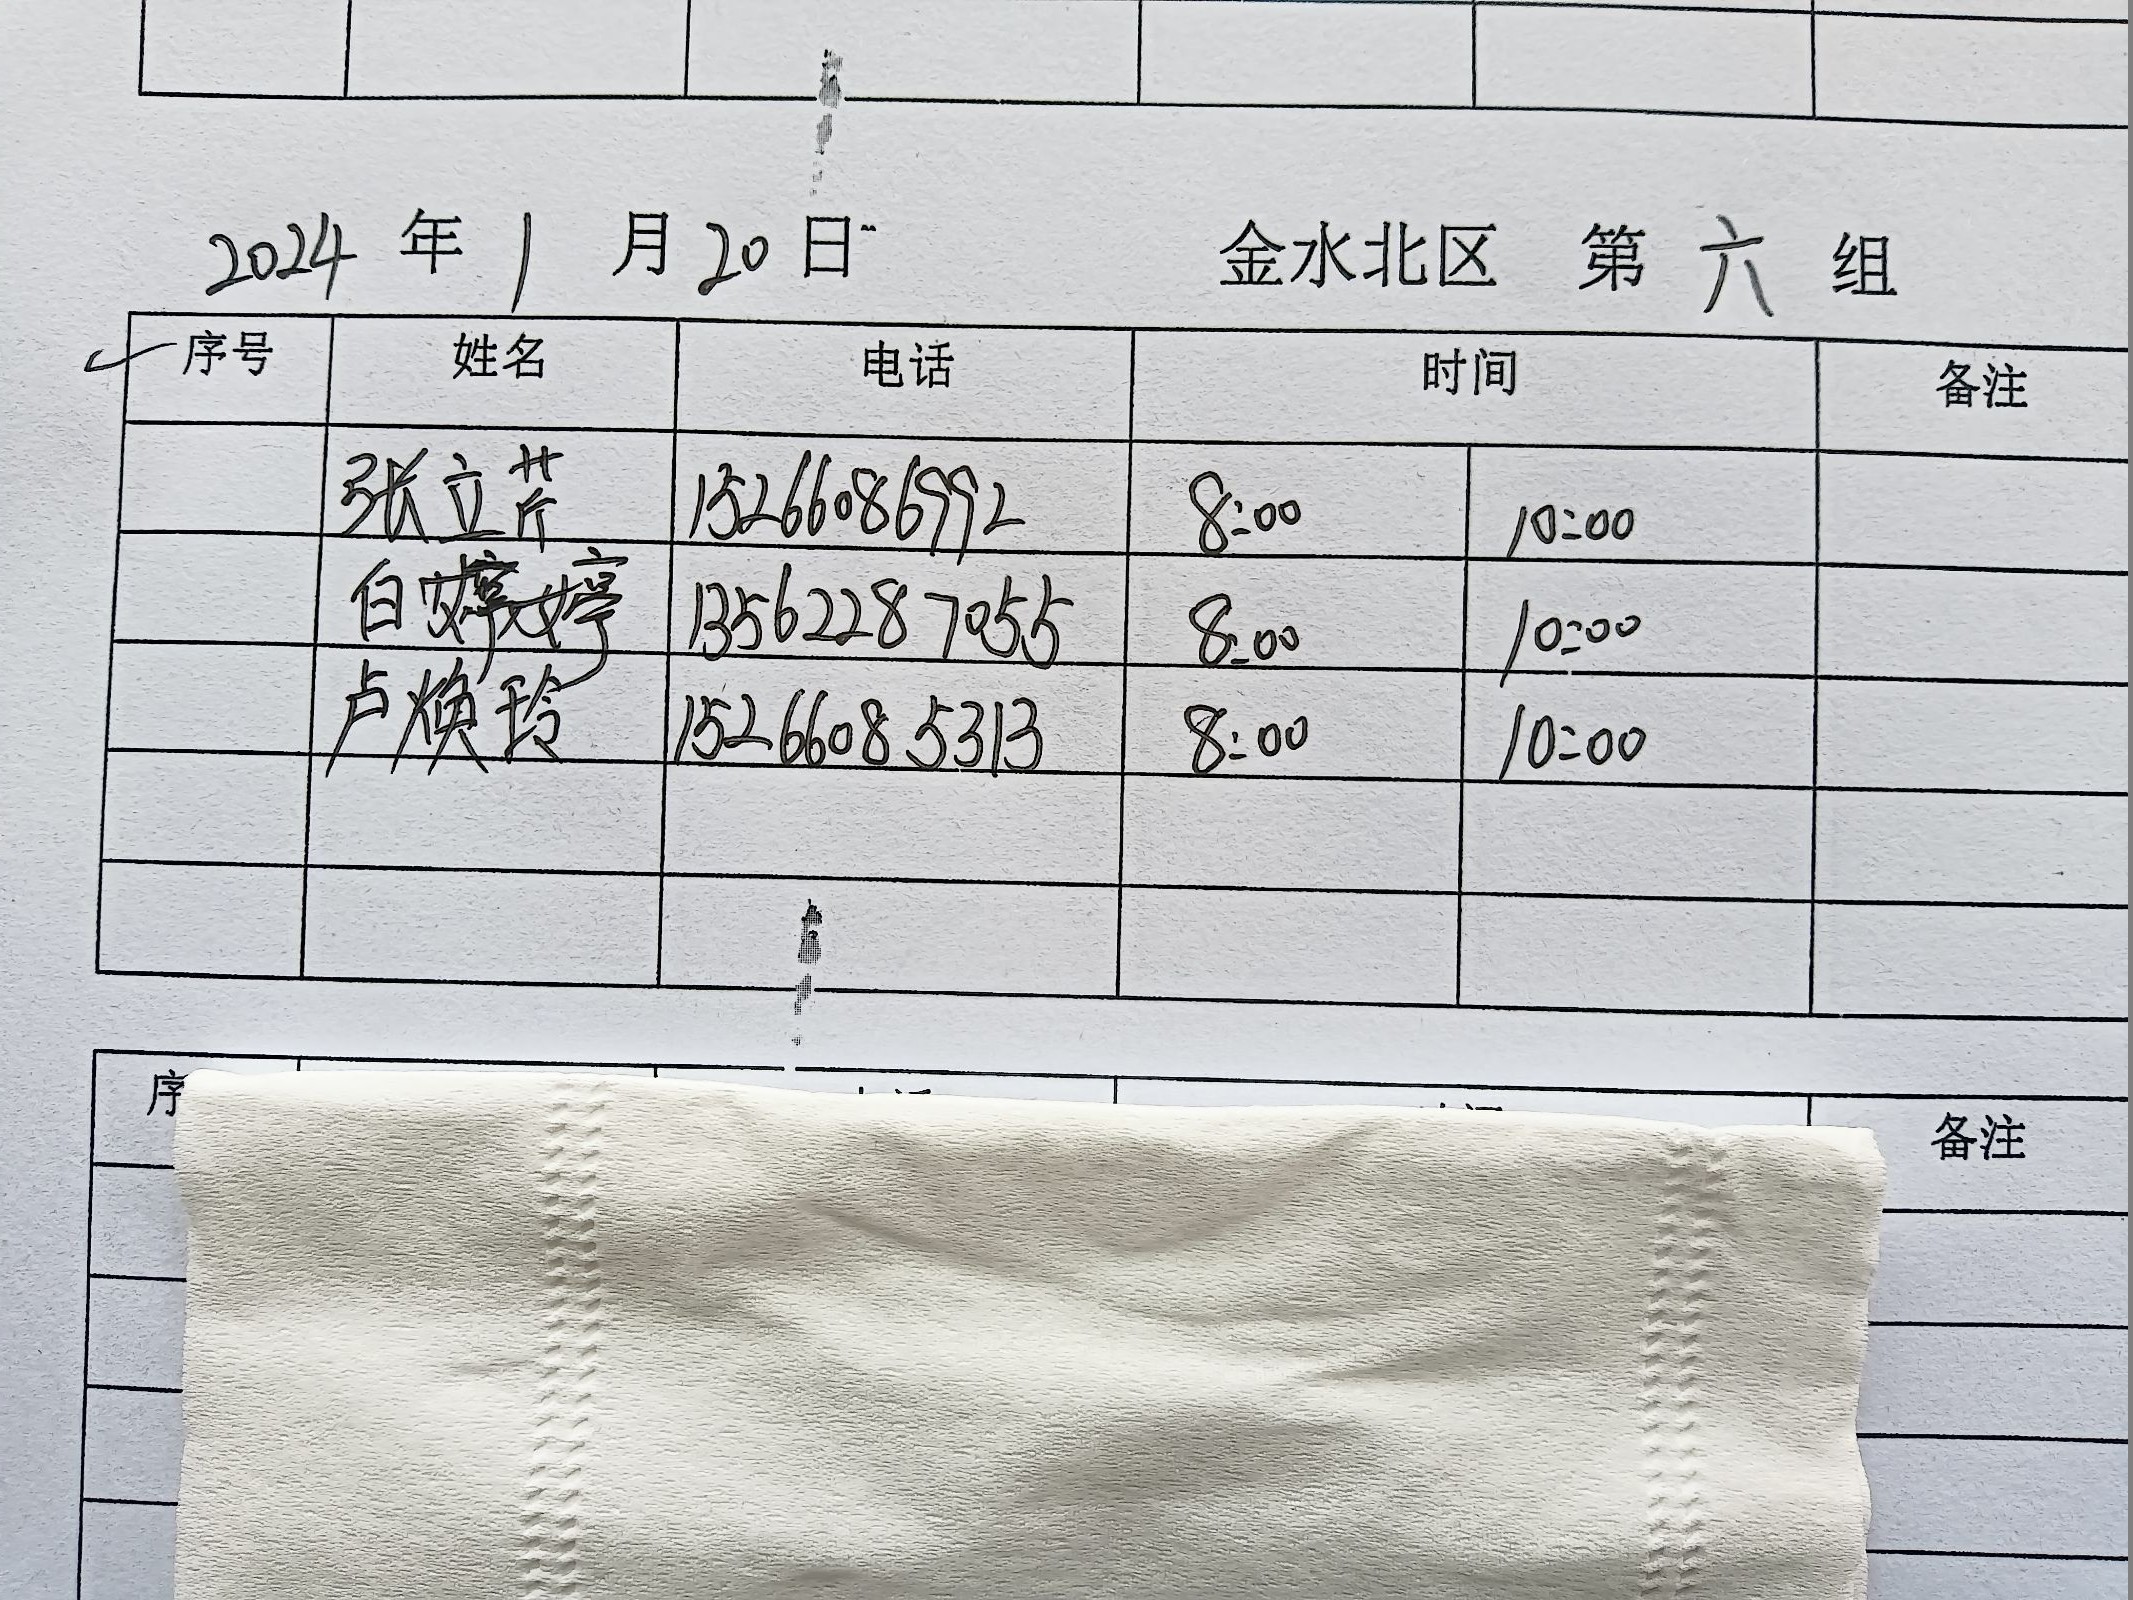 2024 年 1 月 20 日 金水北区 第 六 组
序号 姓名 电话 时间 备注
张立芹 15266086992 8:00 10:00
白婷婷 13562287055 8:00 10:00
卢焕玲 15266085313 8:00 10:00
序 备注